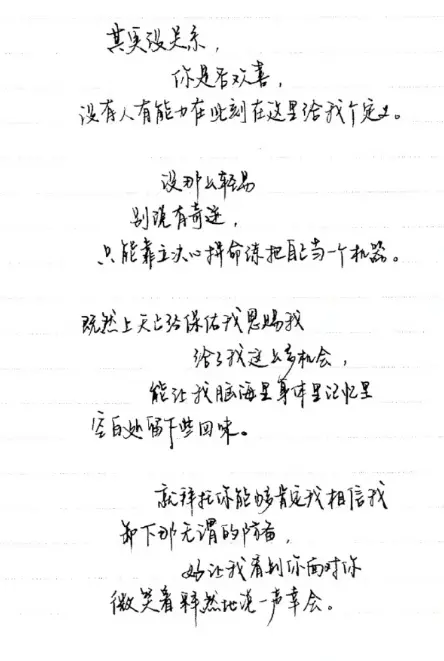 其实没关系，
你是否欢喜，
没有人有能力在此刻在这里给我个定义。
没那么轻易
别说有奇迹，
只能靠立决心拼命练把自己当一个机器。
既然上天已给保佑我恩赐我
给了我这么多机会，
能让我脑海里身体里记忆里
空白处留下些回味。
就拜托你能够肯定我相信我
卸下那无谓的防备，
好让我看到你面对你
微笑着释然地说一声幸会。